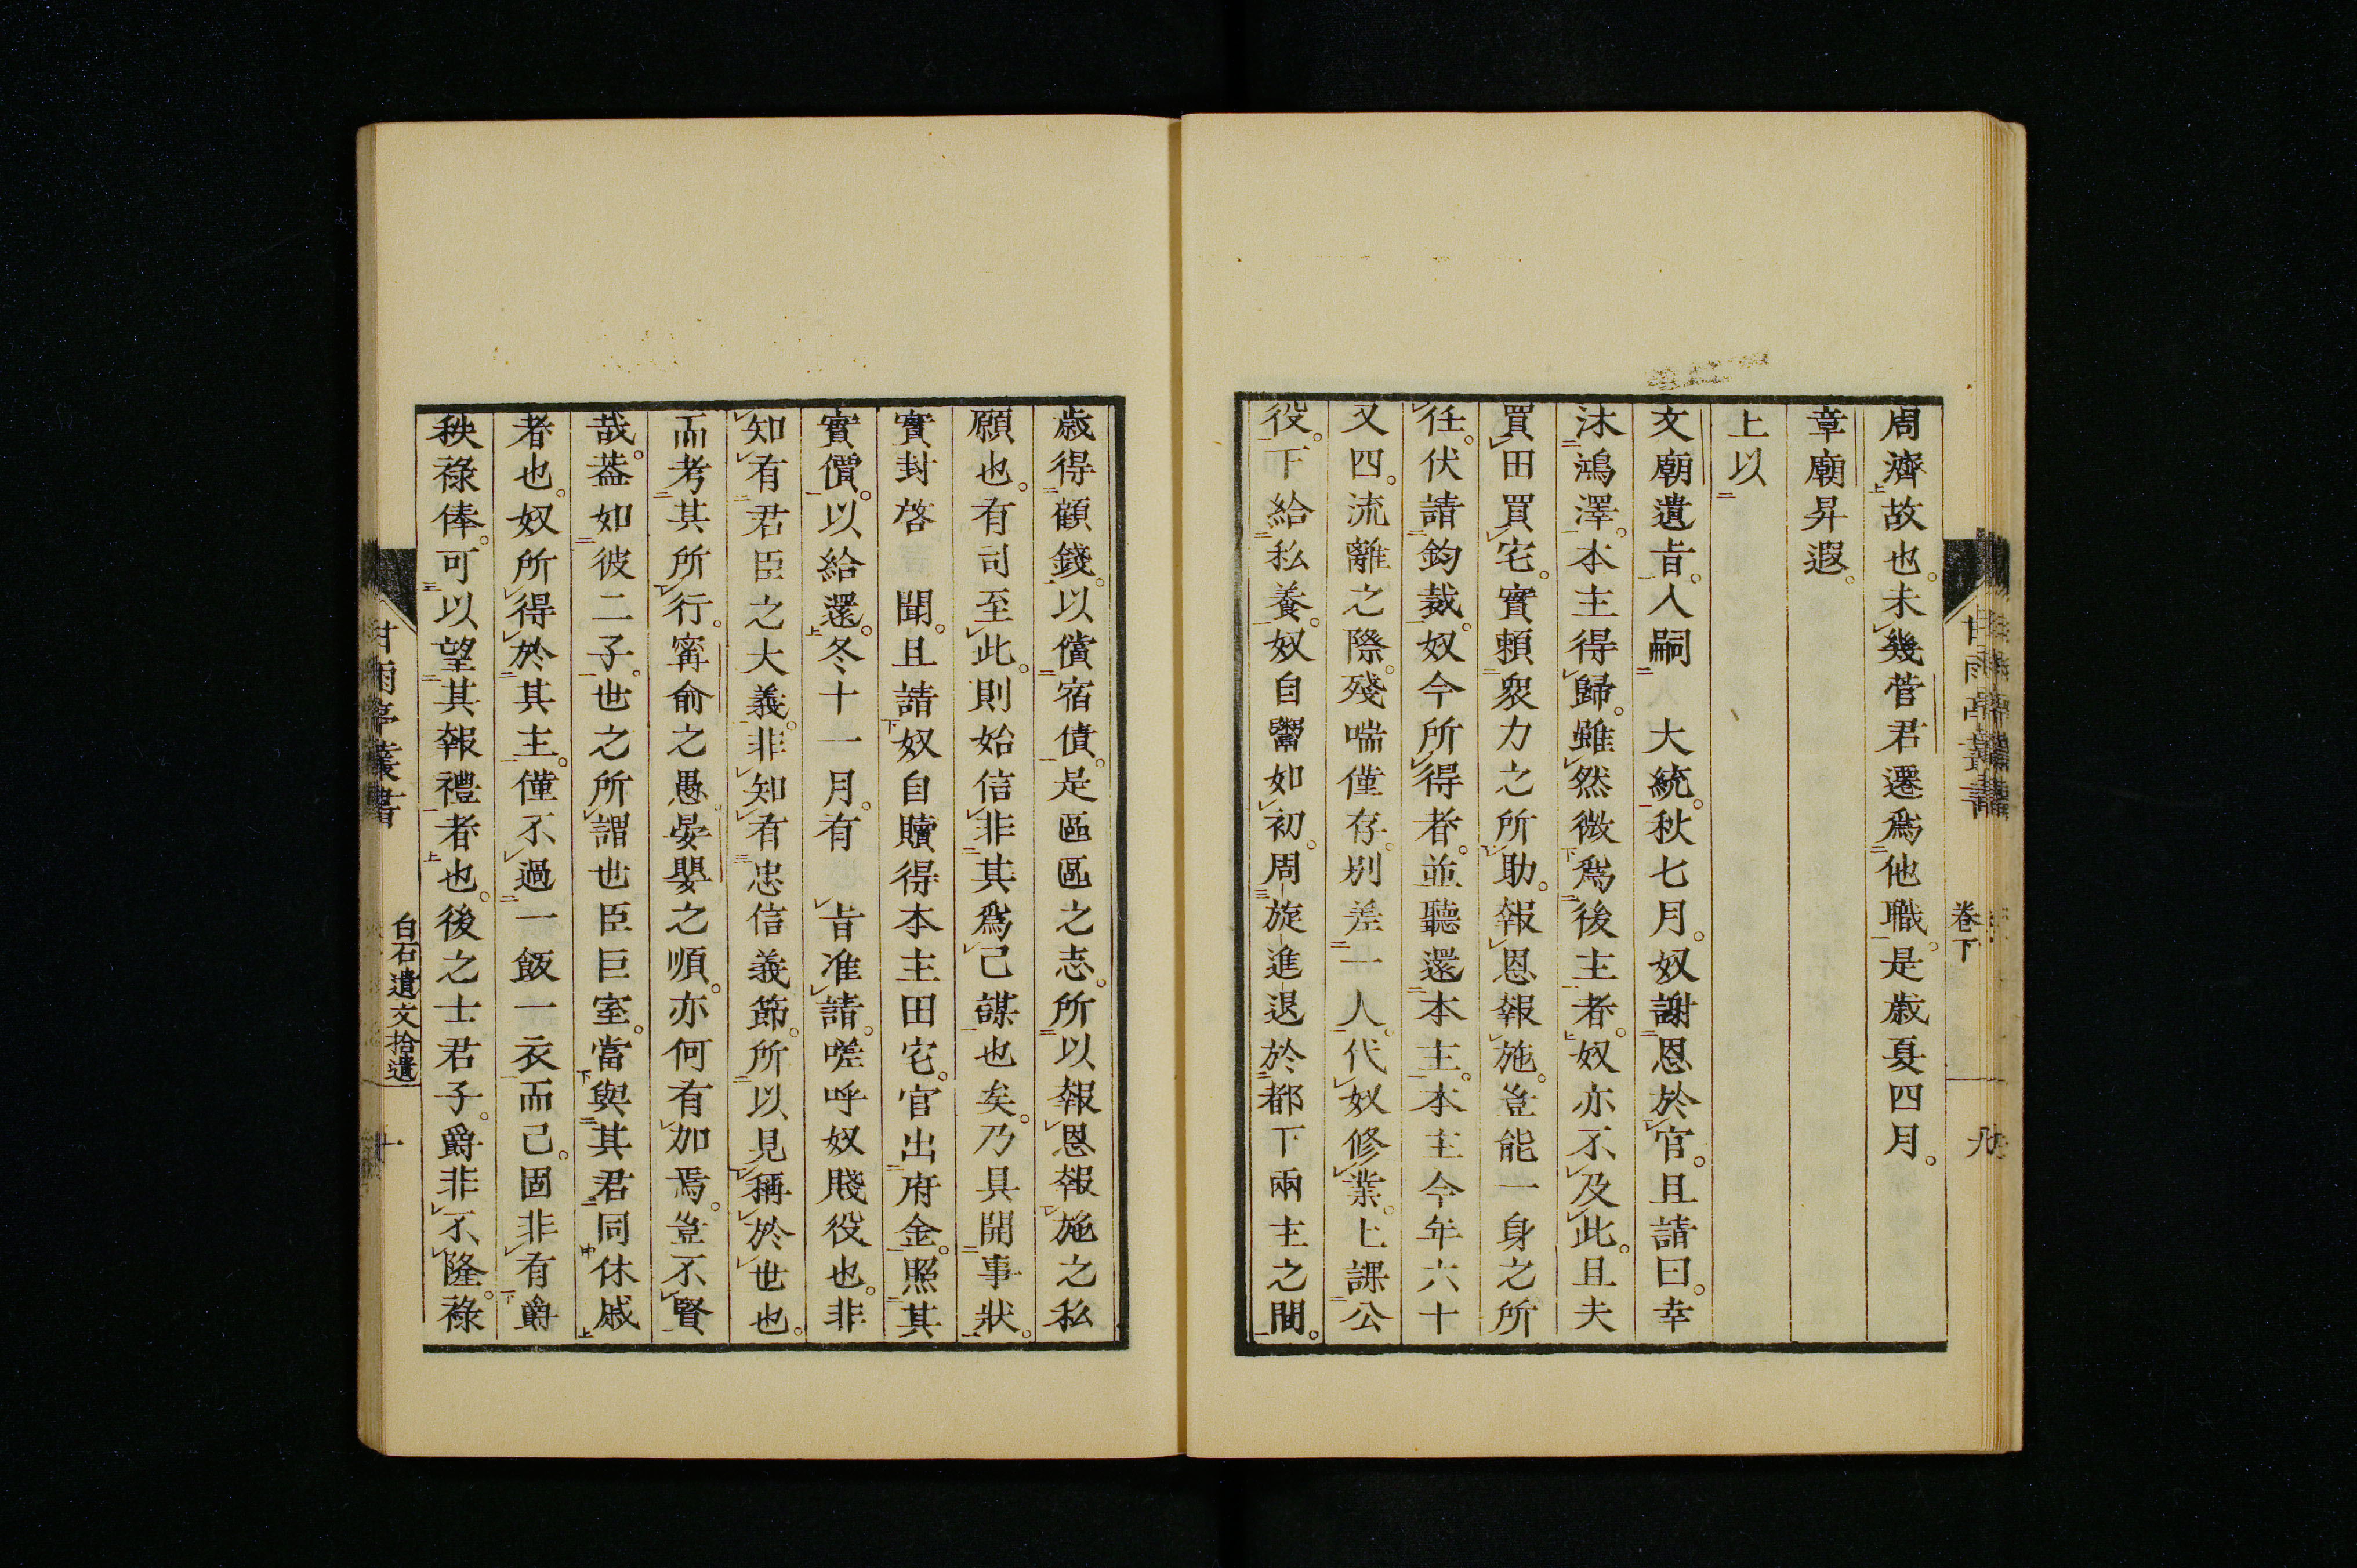 周濟故也。未幾菅君遷爲他職。是歳夏四月。
章廟昇遐。
上以
文廟遺旨。人嗣　大統。秋七月。奴謝恩於官。且請曰。幸
沐鴻澤。本主得歸。雖然微爲後主者。奴亦不及此。且夫
買田買宅。實頼衆力之所助。報恩報施。豈能一身之所
任。伏請鈞裁。奴今所得者。並聽還本主。本主今年六十
又四。流離之際。殘喘僅存。別差一人。代奴修業。上課公
役。下給私養。奴自鬻如初。周旋進退於都下兩主之間。
甘雨亭叢書　卷下　九
歳得顧錢。以償宿債。是區區之志。所以報恩報施之私
願也。有司至此。則始信非其爲己謀也矣。乃具開事狀。
實封啓　聞。且請奴自贖得本主田宅。官出府金。照其
實價。以給還。冬十一月。有　旨准請。嗟呼奴賤役也。非
知有君臣之大義。非知有忠信義節。所以見稱於世也。
而考其所行。甯俞之愚。晏嬰之順。亦何有加焉。豈不賢
哉。葢如彼二子。世之所謂世臣巨室。當與其君同休戚
者也。奴所得於其主。僅不過一飯一衣而己。固非有爵
秩祿俸。可以望其報禮者也。後之士君子。爵非不隆。祿
甘雨亭叢書　白石遺文拾遺　十